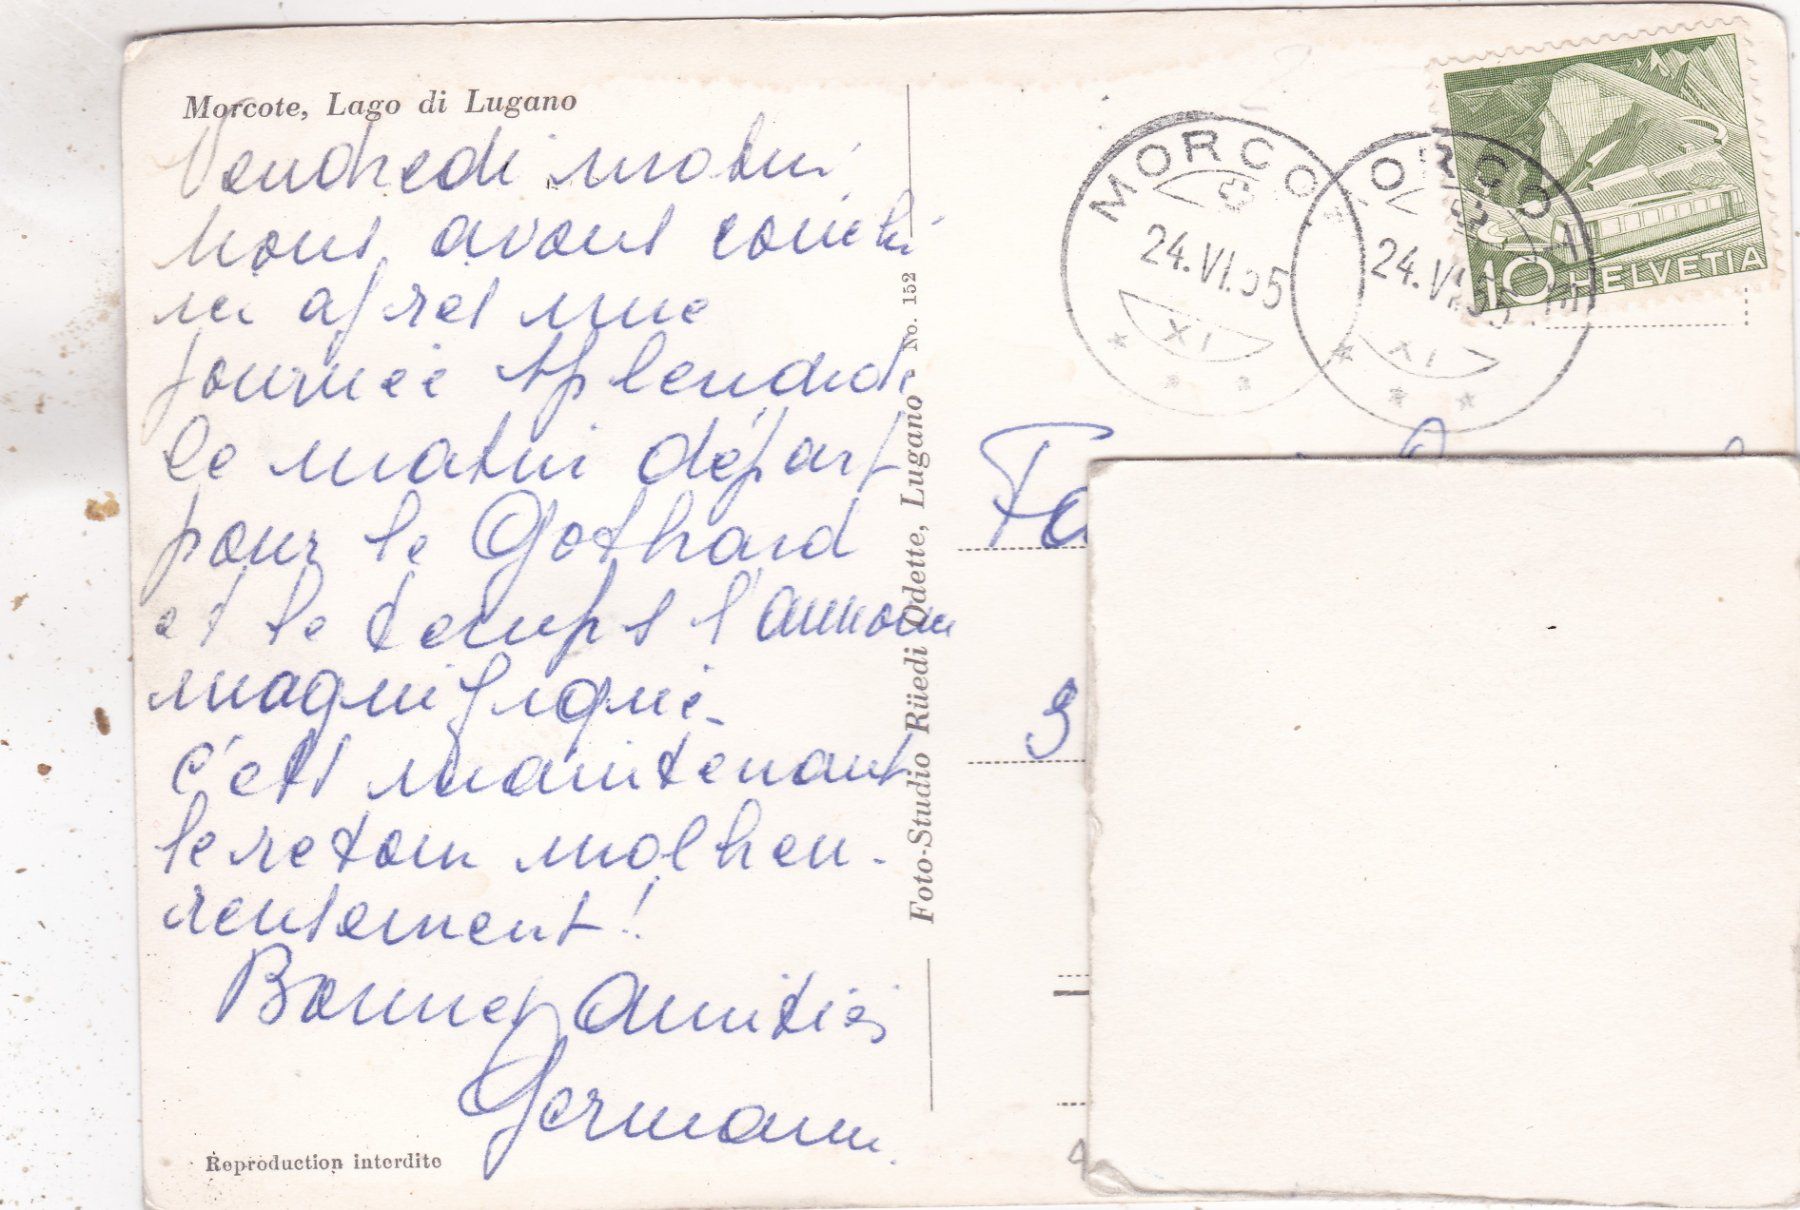 Morcote, Lago di Lugano
Vendredi matin
nous avons couché
ici après une
journée splendide
le matin départ
pour le Gothard
et le temps s'annonce
magnifique.
c'est maintenant
le retour malheu-
reusement !
Bonnes amitiés
Germann.
Reproduction interdite
Foto-Studio Riedi Odette, Lugano No. 152
MORCO
24.VI.55
XI
MORCO
24.VI.55
XI
10 HELVETIA